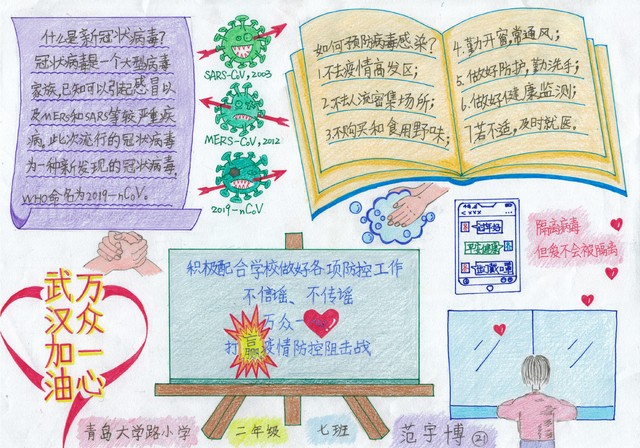 什么是新冠状病毒?
冠状病毒是一个大型病毒
家族,已知可以引起感冒以
及MERS和SARS等较严重疾
病,此次流行的冠状病毒
为一种新发现的冠状病毒,
WHO命名为2019-nCoV。
SARS-CoV,2003
MERS-CoV,2012
2019-nCoV
如何预防病毒感染?
1.不去疫情高发区;
2.不去人流密集场所;
3.不购买和食用野味;
4.勤开窗,常通风;
5.做好防护,勤洗手;
6.做好健康监测;
7.若不适,及时就医。
隔离病毒
但爱不会被隔离
过年好
平安健康
出门戴口罩
万众一心
武汉加油
积极配合学校做好各项防控工作
不信谣、不传谣
万众一
打赢疫情防控阻击战
青岛大学路小学
二年级
七班
范宇博
②